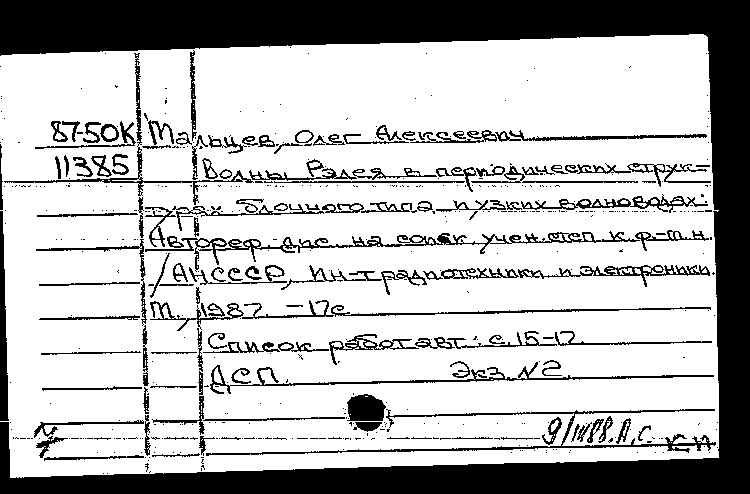 87-50К Мальцев, Олег Алексеевич
11385 Волны Рэлея в периодических струк-
турах блочного типа и узких волноводах:
Автореф. дис. на соиск. учен. степ. к.ф-м.н.
/АН СССР, Ин-т радиотехники и электроники.
М., 1987. -17с
Список работ авт.: с. 15-17.
ДСП. Экз. N2.
9/III88. А.С.